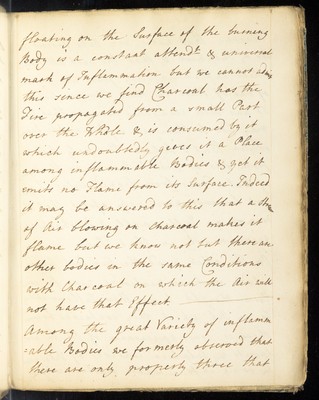 floating on the Surface of the burning
Body is a constant attendt. & universal
mark of Inflammation but we cannot admit
this sence we find Charcoal has the
Fire propagated from a small Part
over the Whole & is consumed by it
which undoubtedly gives it a Place
among inflammable Bodies & yet it
emits no Flame from its Surface. Indeed
it may be answered to this that a
of Air blowing on Charcoal makes it
flame but we know not but there are
other bodies in the same Conditions
with Charcoal on which the Air will
not have that Effect
Among the great Variety of inflamm
=able Bodies we formerly observed that
there are only properly three that